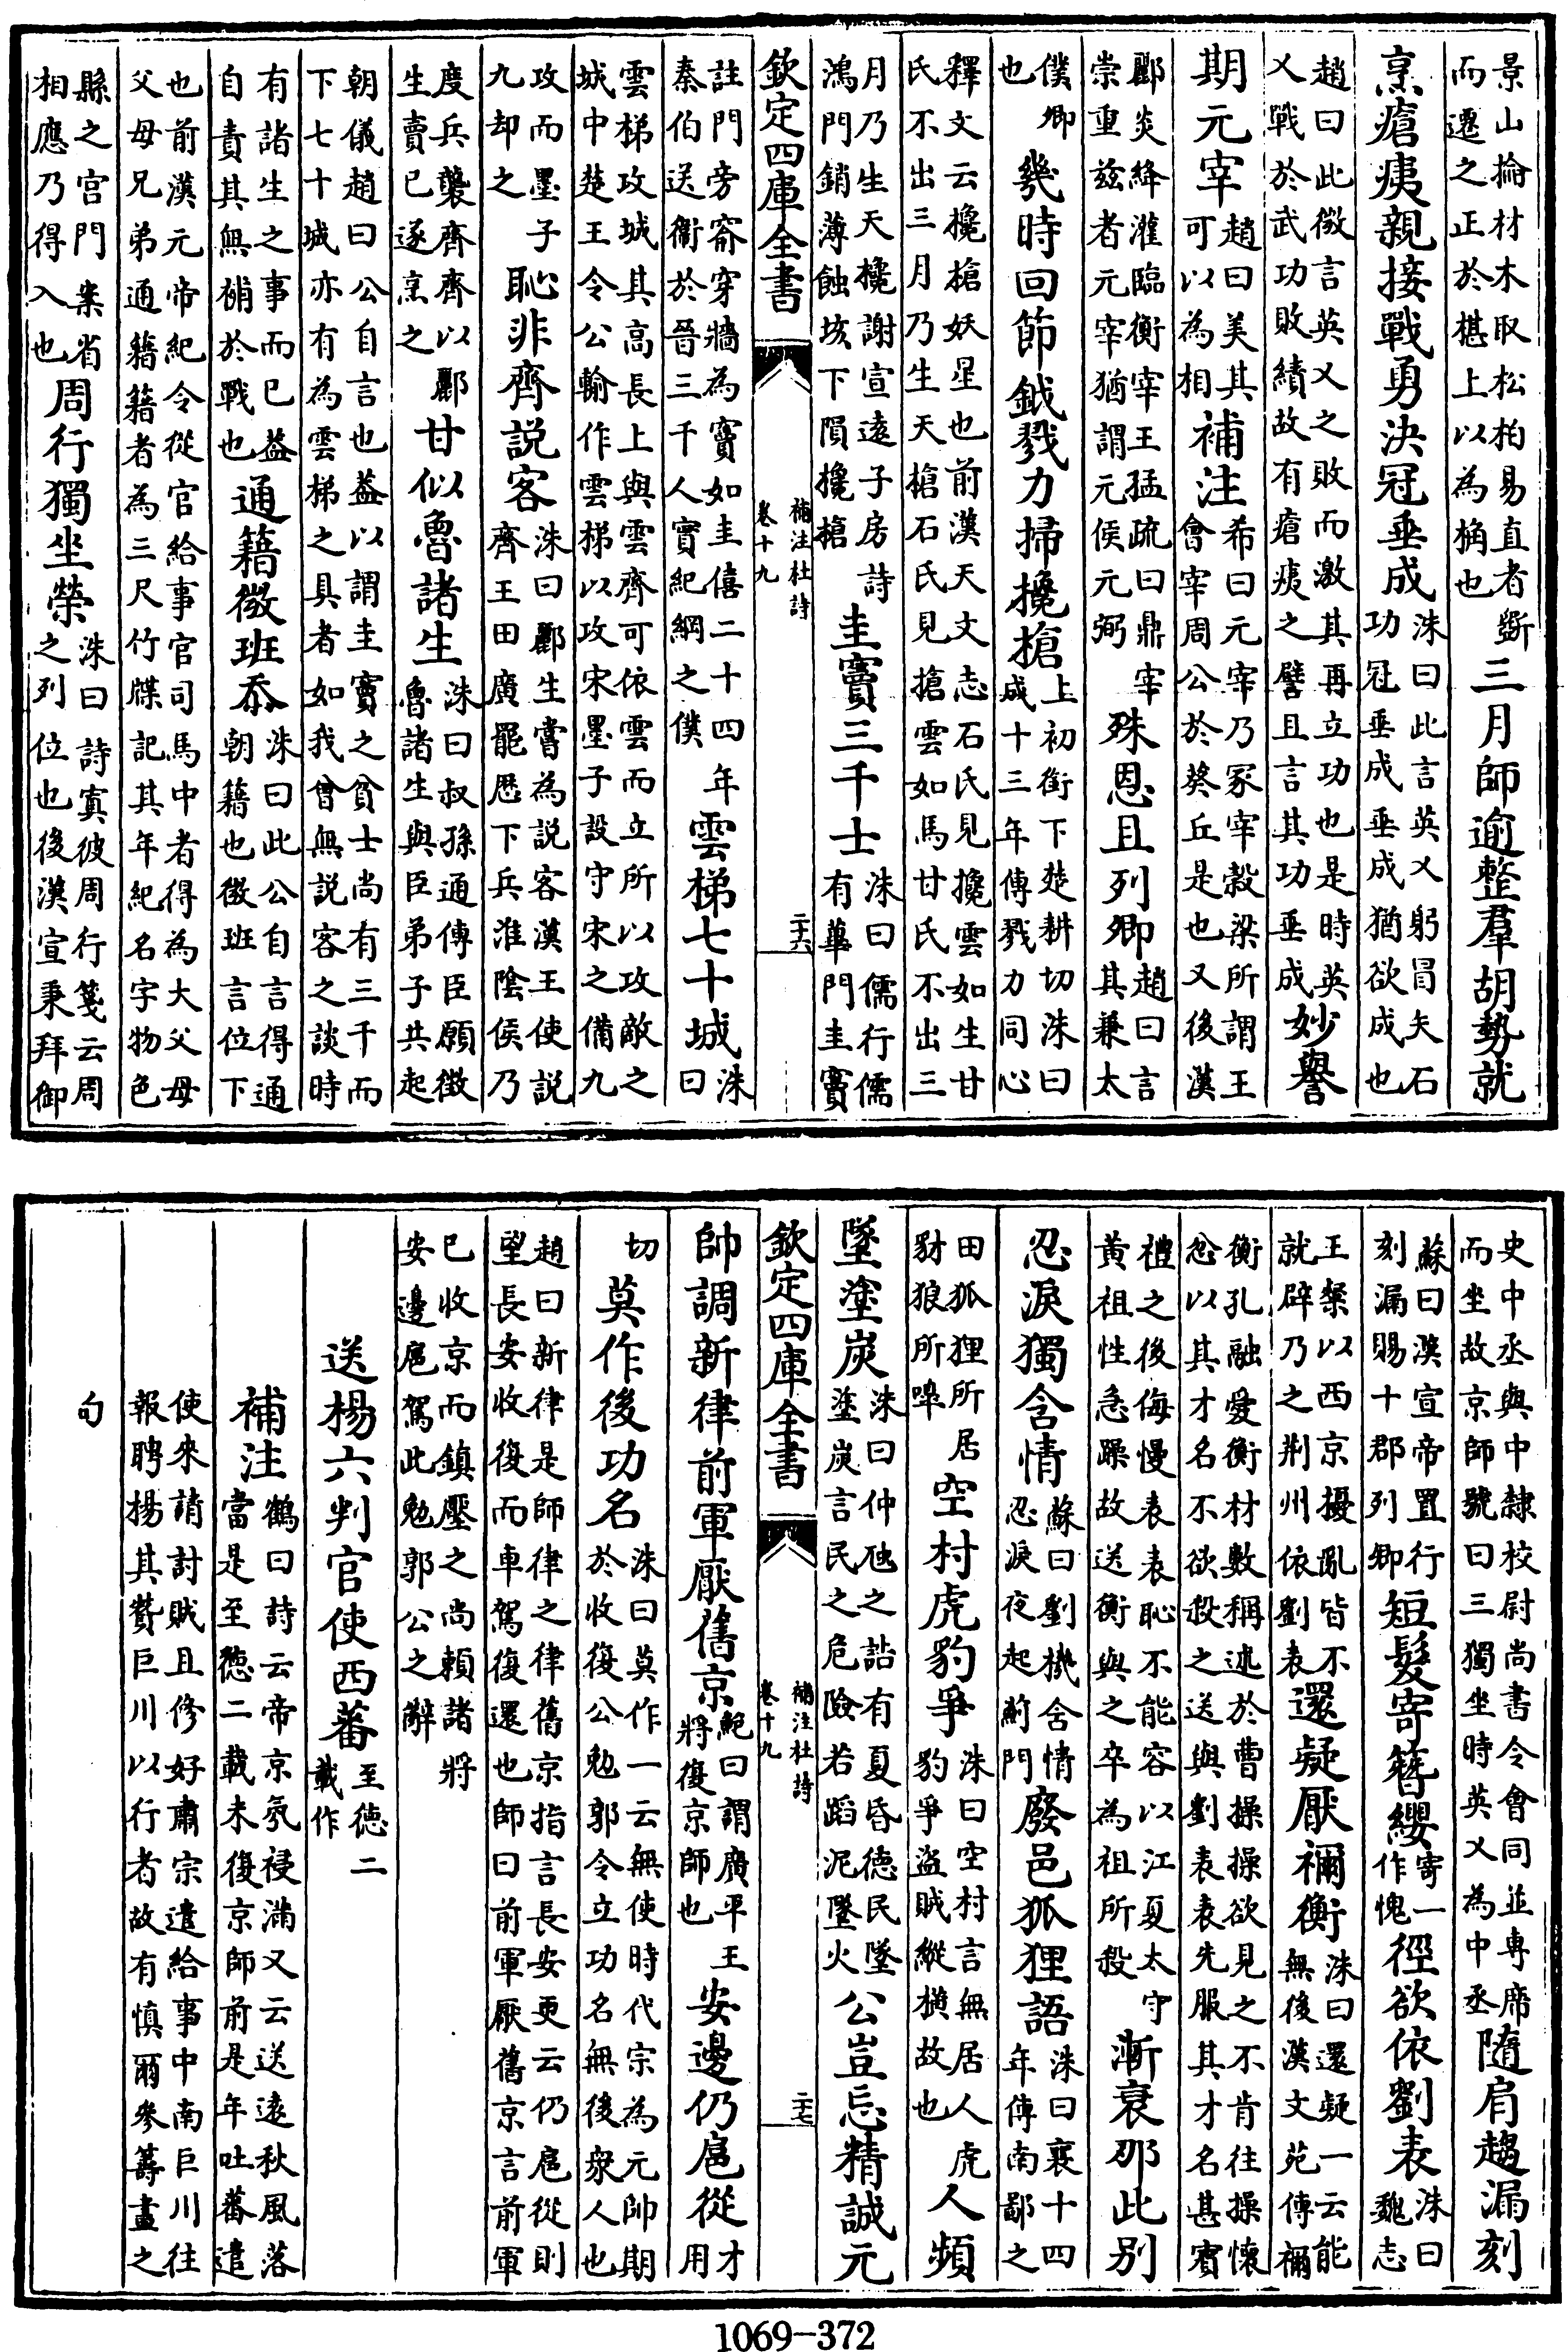 景山掄材木取松柏易直者斵
而遷之正於椹上以為桷也
三月師逾整羣胡勢就
烹瘡痍親接戰勇決冠垂成
洙曰此言英乂躬冒矢石
功冠垂成垂成猶欲成也
趙曰此微言英乂之敗而激其再立功也是時英
乂戰於武功敗績故有瘡痍之譬且言其功垂成
妙譽
期元宰
趙曰美其
可以為相
補注
希曰元宰乃冢宰穀梁所謂王
會宰周公於葵丘是也又後漢
酈炎絳灌臨衡宰王猛疏曰鼎宰
崇重兹者元宰猶謂元侯元弼
殊恩且列卿
趙曰言
其兼太
僕卿
也
幾時回節鉞戮力掃攙槍
上初銜下楚耕切洙曰
成十三年傳戮力同心
釋文云攙槍妖星也前漢天文志石氏見攙雲如生甘
氏不出三月乃生天槍石氏見搶雲如馬甘氏不出三
月乃生天攙謝宣遠子房詩
鴻門銷薄蝕垓下隕攙槍
圭竇三千士
洙曰儒行儒
有蓽門圭竇
欽定四庫全書
補注杜詩
卷十九
二十六
註門旁窬穿牆為竇如圭僖二十四年
秦伯送衞於晉三千人實紀綱之僕
雲梯七十城
洙
曰
雲梯攻城其高長上與雲齊可依雲而立所以攻敵之
城中楚王令公輸作雲梯以攻宋墨子設守宋之備九
攻而墨子
九却之
恥非齊説客
洙曰酈生嘗為説客漢王使説
齊王田廣罷厯下兵淮陰侯乃
度兵襲齊齊以酈
生賣已遂烹之
甘似魯諸生
洙曰叔孫通傳臣願徵
魯諸生與臣弟子共起
朝儀趙曰公自言也葢以謂圭竇之貧士尚有三千而
下七十城亦有為雲梯之具者如我曾無説客之談時
有諸生之事而已葢
自責其無補於戰也
通籍微班忝
洙曰此公自言得通
朝籍也微班言位下
也前漢元帝紀令從官給事官司馬中者得為大父母
父母兄弟通籍籍者為三尺竹牒記其年紀名字物色
縣之宫門案省
相應乃得入也
周行獨坐榮
洙曰詩寘彼周行箋云周
之列位也後漢宣秉拜御
史中丞與中隸校尉尚書令會同並専席
而坐故京師號曰三獨坐時英乂為中丞
随肩趨漏刻
蘇曰漢宣帝置行
刻漏賜十郡列卿
短髪寄簪纓
寄一
作愧
徑欲依劉表
洙曰
魏志
王粲以西京擾亂皆不
就辟乃之荆州依劉表
還疑厭禰衡
洙曰還疑一云能
無後漢文苑傳禰
衡孔融愛衡材數稱述於曹操操欲見之不肯往操懐
忿以其才名不欲殺之送與劉表表先服其才名甚賓
禮之後侮慢表表恥不能容以江夏太守
黄祖性急躁故送衡與之卒為祖所殺
漸衰那此别
忍淚獨含情
蘇曰劉機含情
忍淚夜起薊門
廢邑狐狸語
洙曰襄十四
年傳南鄙之
田狐狸所居
豺狼所嘷
空村虎豹爭
洙曰空村言無居人虎
豹爭盗賊縱横故也
人頻
墜塗炭
洙曰仲虺之誥有夏昏德民墜
塗炭言民之危險若蹈泥墜火
公豈忘精誠元
欽定四庫全書
補注杜詩
卷十九
二十七
帥調新律前軍厭舊京
鮑曰謂廣平王
將復京師也
安邊仍扈從
才
用
切
莫作後功名
洙曰莫作一云無使時代宗為元帥期
於收復公勉郭令立功名無後衆人也
趙曰新律是師律之律舊京指言長安更云仍扈從則
望長安收復而車駕復還也師曰前軍厭舊京言前軍
已收京而鎮壓之尚頼諸將
安邊扈駕此勉郭公之辭
送楊六判官使西蕃
至徳二
載作
補注
鶴曰詩云帝京氛祲滿又云送逺秋風落
當是至徳二載未復京師前是年吐蕃遣
使來請討賊且修好肅宗遣給事中南巨川往
報聘楊其贊巨川以行者故有慎爾參籌畫之
句
1069-372